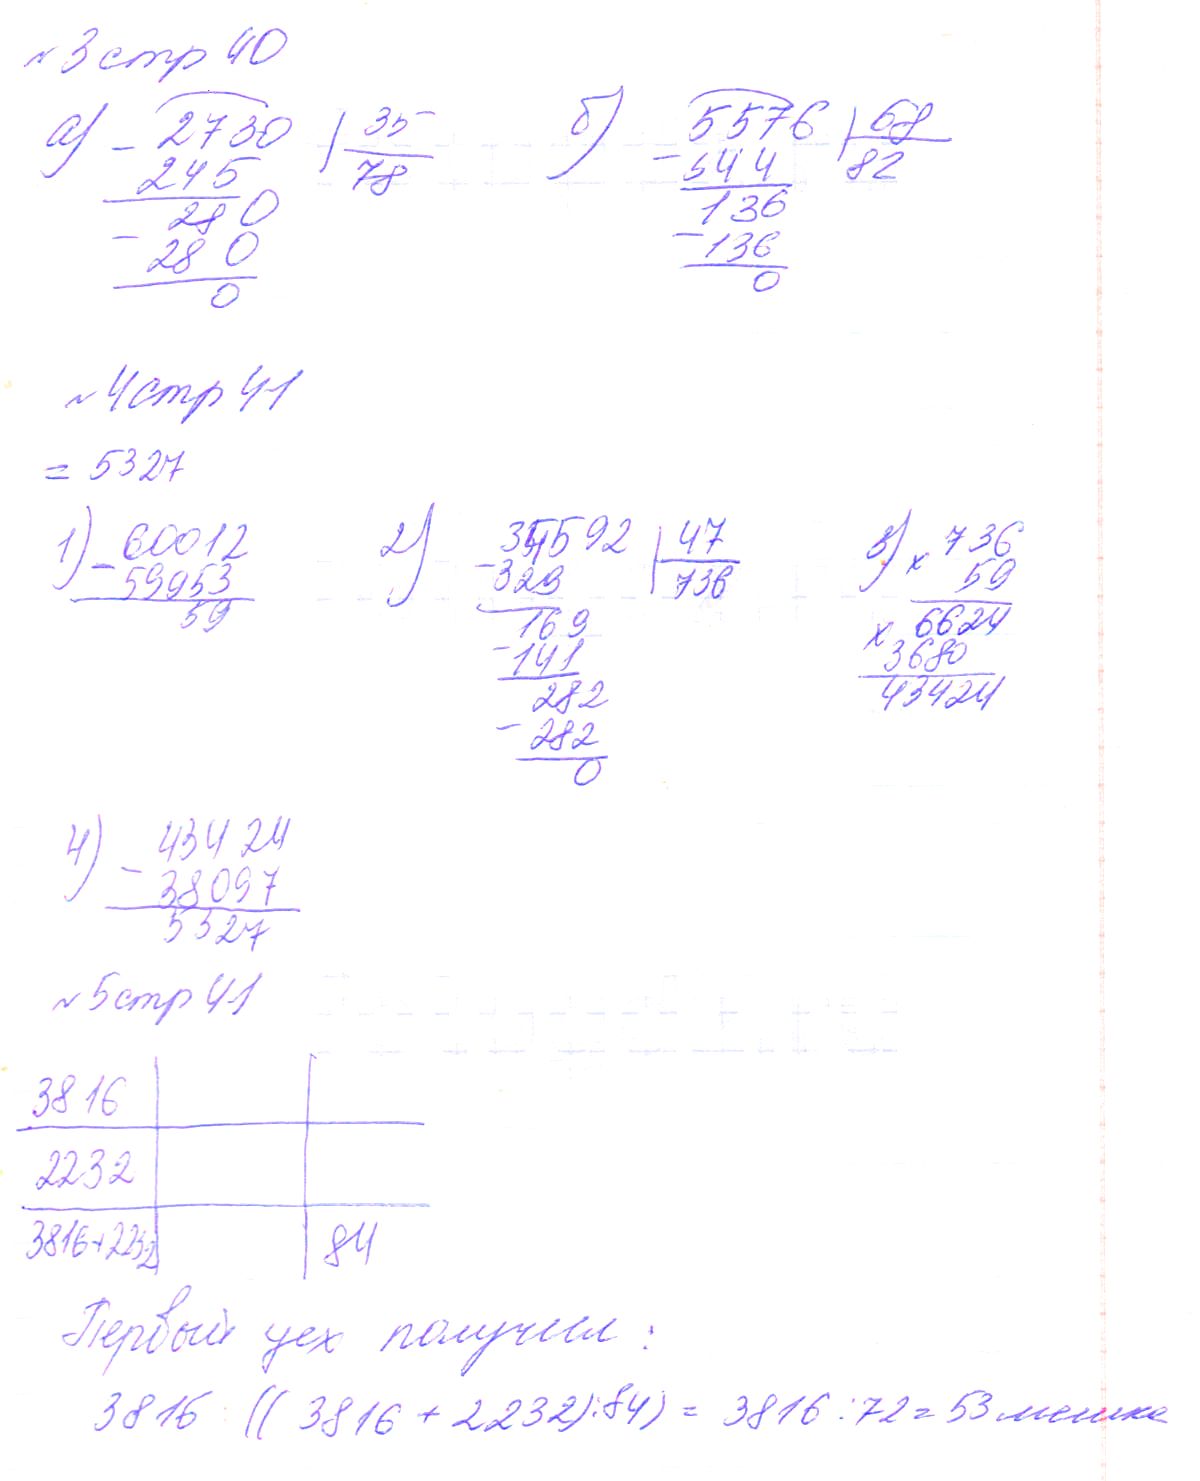 №3 стр 40
а) - 2730 | 35
245 78
280
- 280
0
б) 5576 | 68
- 544 82
136
- 136
0
№4 стр 41
= 5327
1) - 60012
59953
59
2) 34592 | 47
- 329 736
169
- 141
282
- 282
0
3) x 736
59
x 6624
3680
43424
4) 43424
- 38097
5327
№5 стр 41
3816
2232
3816+2232 84
Первый цех получил:
3816 : ((3816 + 2232):84) = 3816:72 = 53 мешка